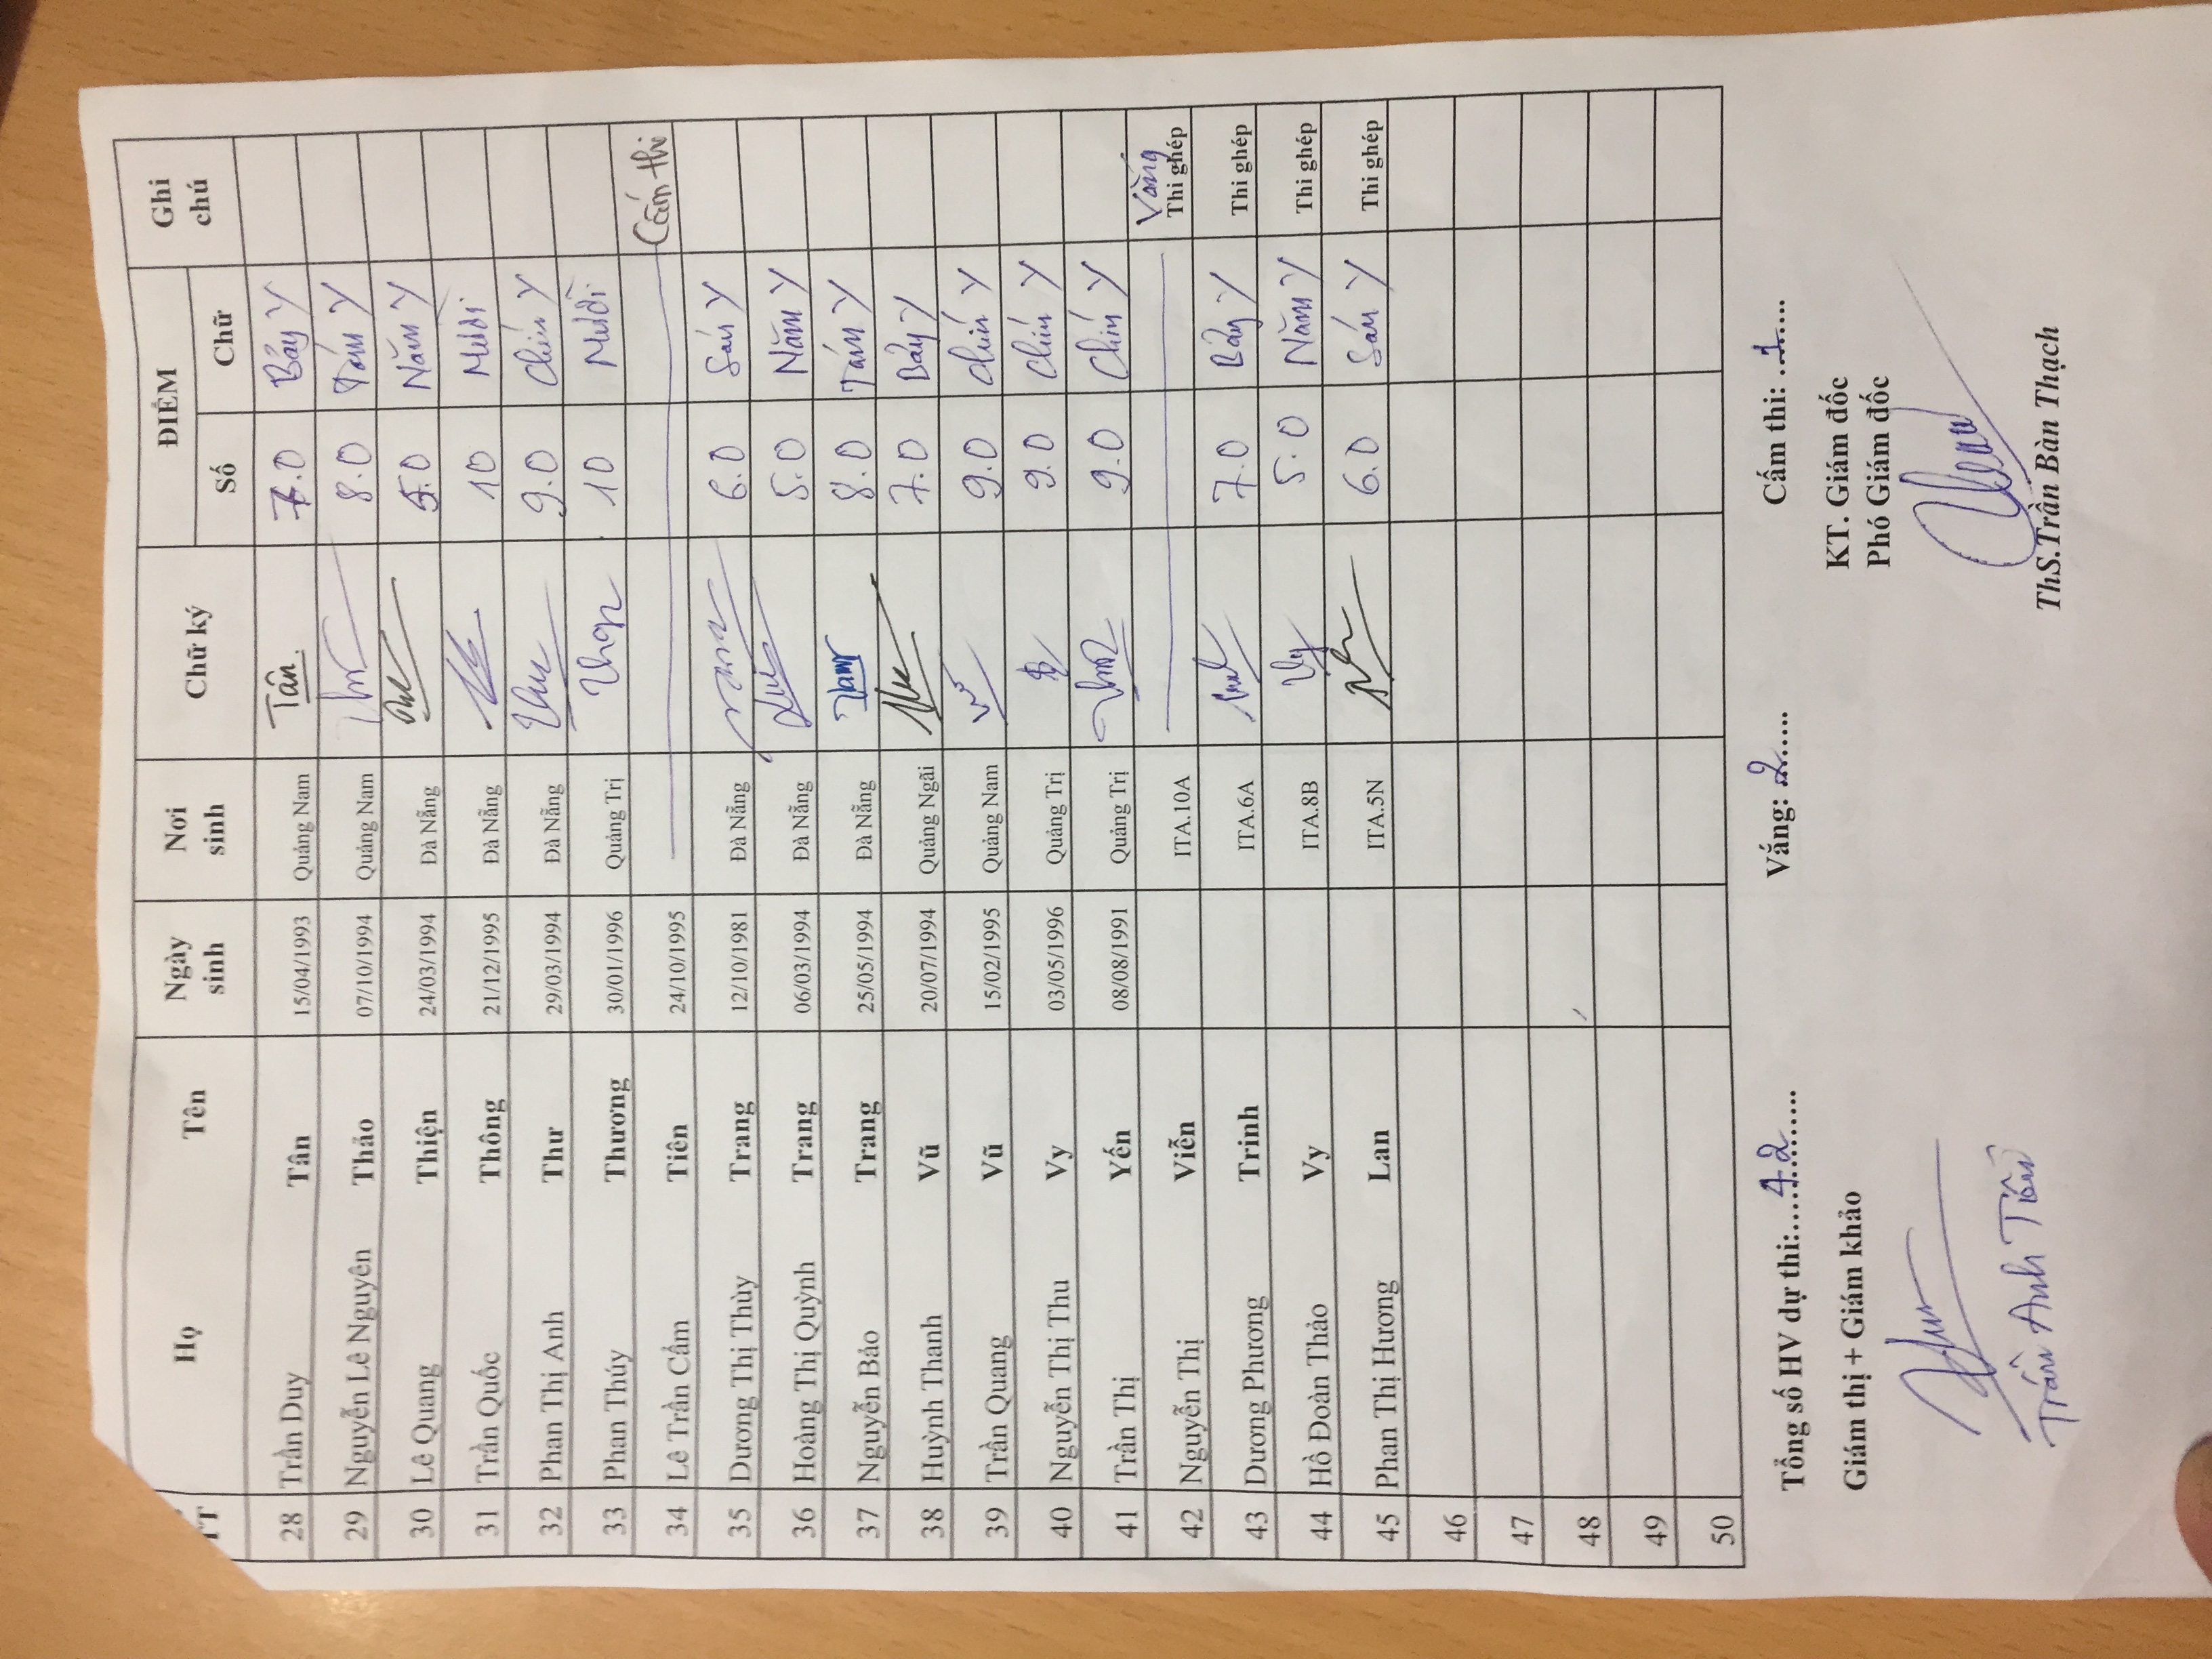 TT Họ Tên Ngày sinh Nơi sinh Chữ ký ĐIỂM Ghi chú
Số Chữ
28 Trần Duy Tân 15/04/1993 Quảng Nam Tân 7.0 Bảy Y
29 Nguyễn Lê Nguyên Thảo 07/10/1994 Quảng Nam 8.0 Tám Y
30 Lê Quang Thiện 24/03/1994 Đà Nẵng 5.0 Năm Y
31 Trần Quốc Thông 21/12/1995 Đà Nẵng 10 Mười
32 Phan Thị Anh Thư 29/03/1994 Đà Nẵng Thư 9.0 Chín Y
33 Phan Thúy Thương 30/01/1996 Quảng Trị 10 Mười
34 Lê Trần Cẩm Tiên 24/10/1995 Cấm thi
35 Dương Thị Thùy Trang 12/10/1981 Đà Nẵng 6.0 Sáu Y
36 Hoàng Thị Quỳnh Trang 06/03/1994 Đà Nẵng 5.0 Năm Y
37 Nguyễn Bảo Trang 25/05/1994 Đà Nẵng 8.0 Tám Y
38 Huỳnh Thanh Vũ 20/07/1994 Quảng Ngãi 7.0 Bảy Y
39 Trần Quang Vũ 15/02/1995 Quảng Nam 9.0 Chín Y
40 Nguyễn Thị Thu Vy 03/05/1996 Quảng Trị 9.0 Chín Y
41 Trần Thị Yến 08/08/1991 Quảng Trị 9.0 Chín Y
42 Nguyễn Thị Viễn ITA.10A Vắng Thi ghép
43 Dương Phương Trinh ITA.6A 7.0 Bảy Y Thi ghép
44 Hồ Đoàn Thảo Vy ITA.8B Vy 5.0 Năm Y Thi ghép
45 Phan Thị Hương Lan ITA.5N 6.0 Sáu Y Thi ghép
46
47
48
49
50
Tổng số HV dự thi:.....42........ Vắng: 2..... Cấm thi: ...1.....
Giám thị + Giám khảo KT. Giám đốc
Phó Giám đốc
Trần Anh Tân
ThS.Trần Bàn Thạch